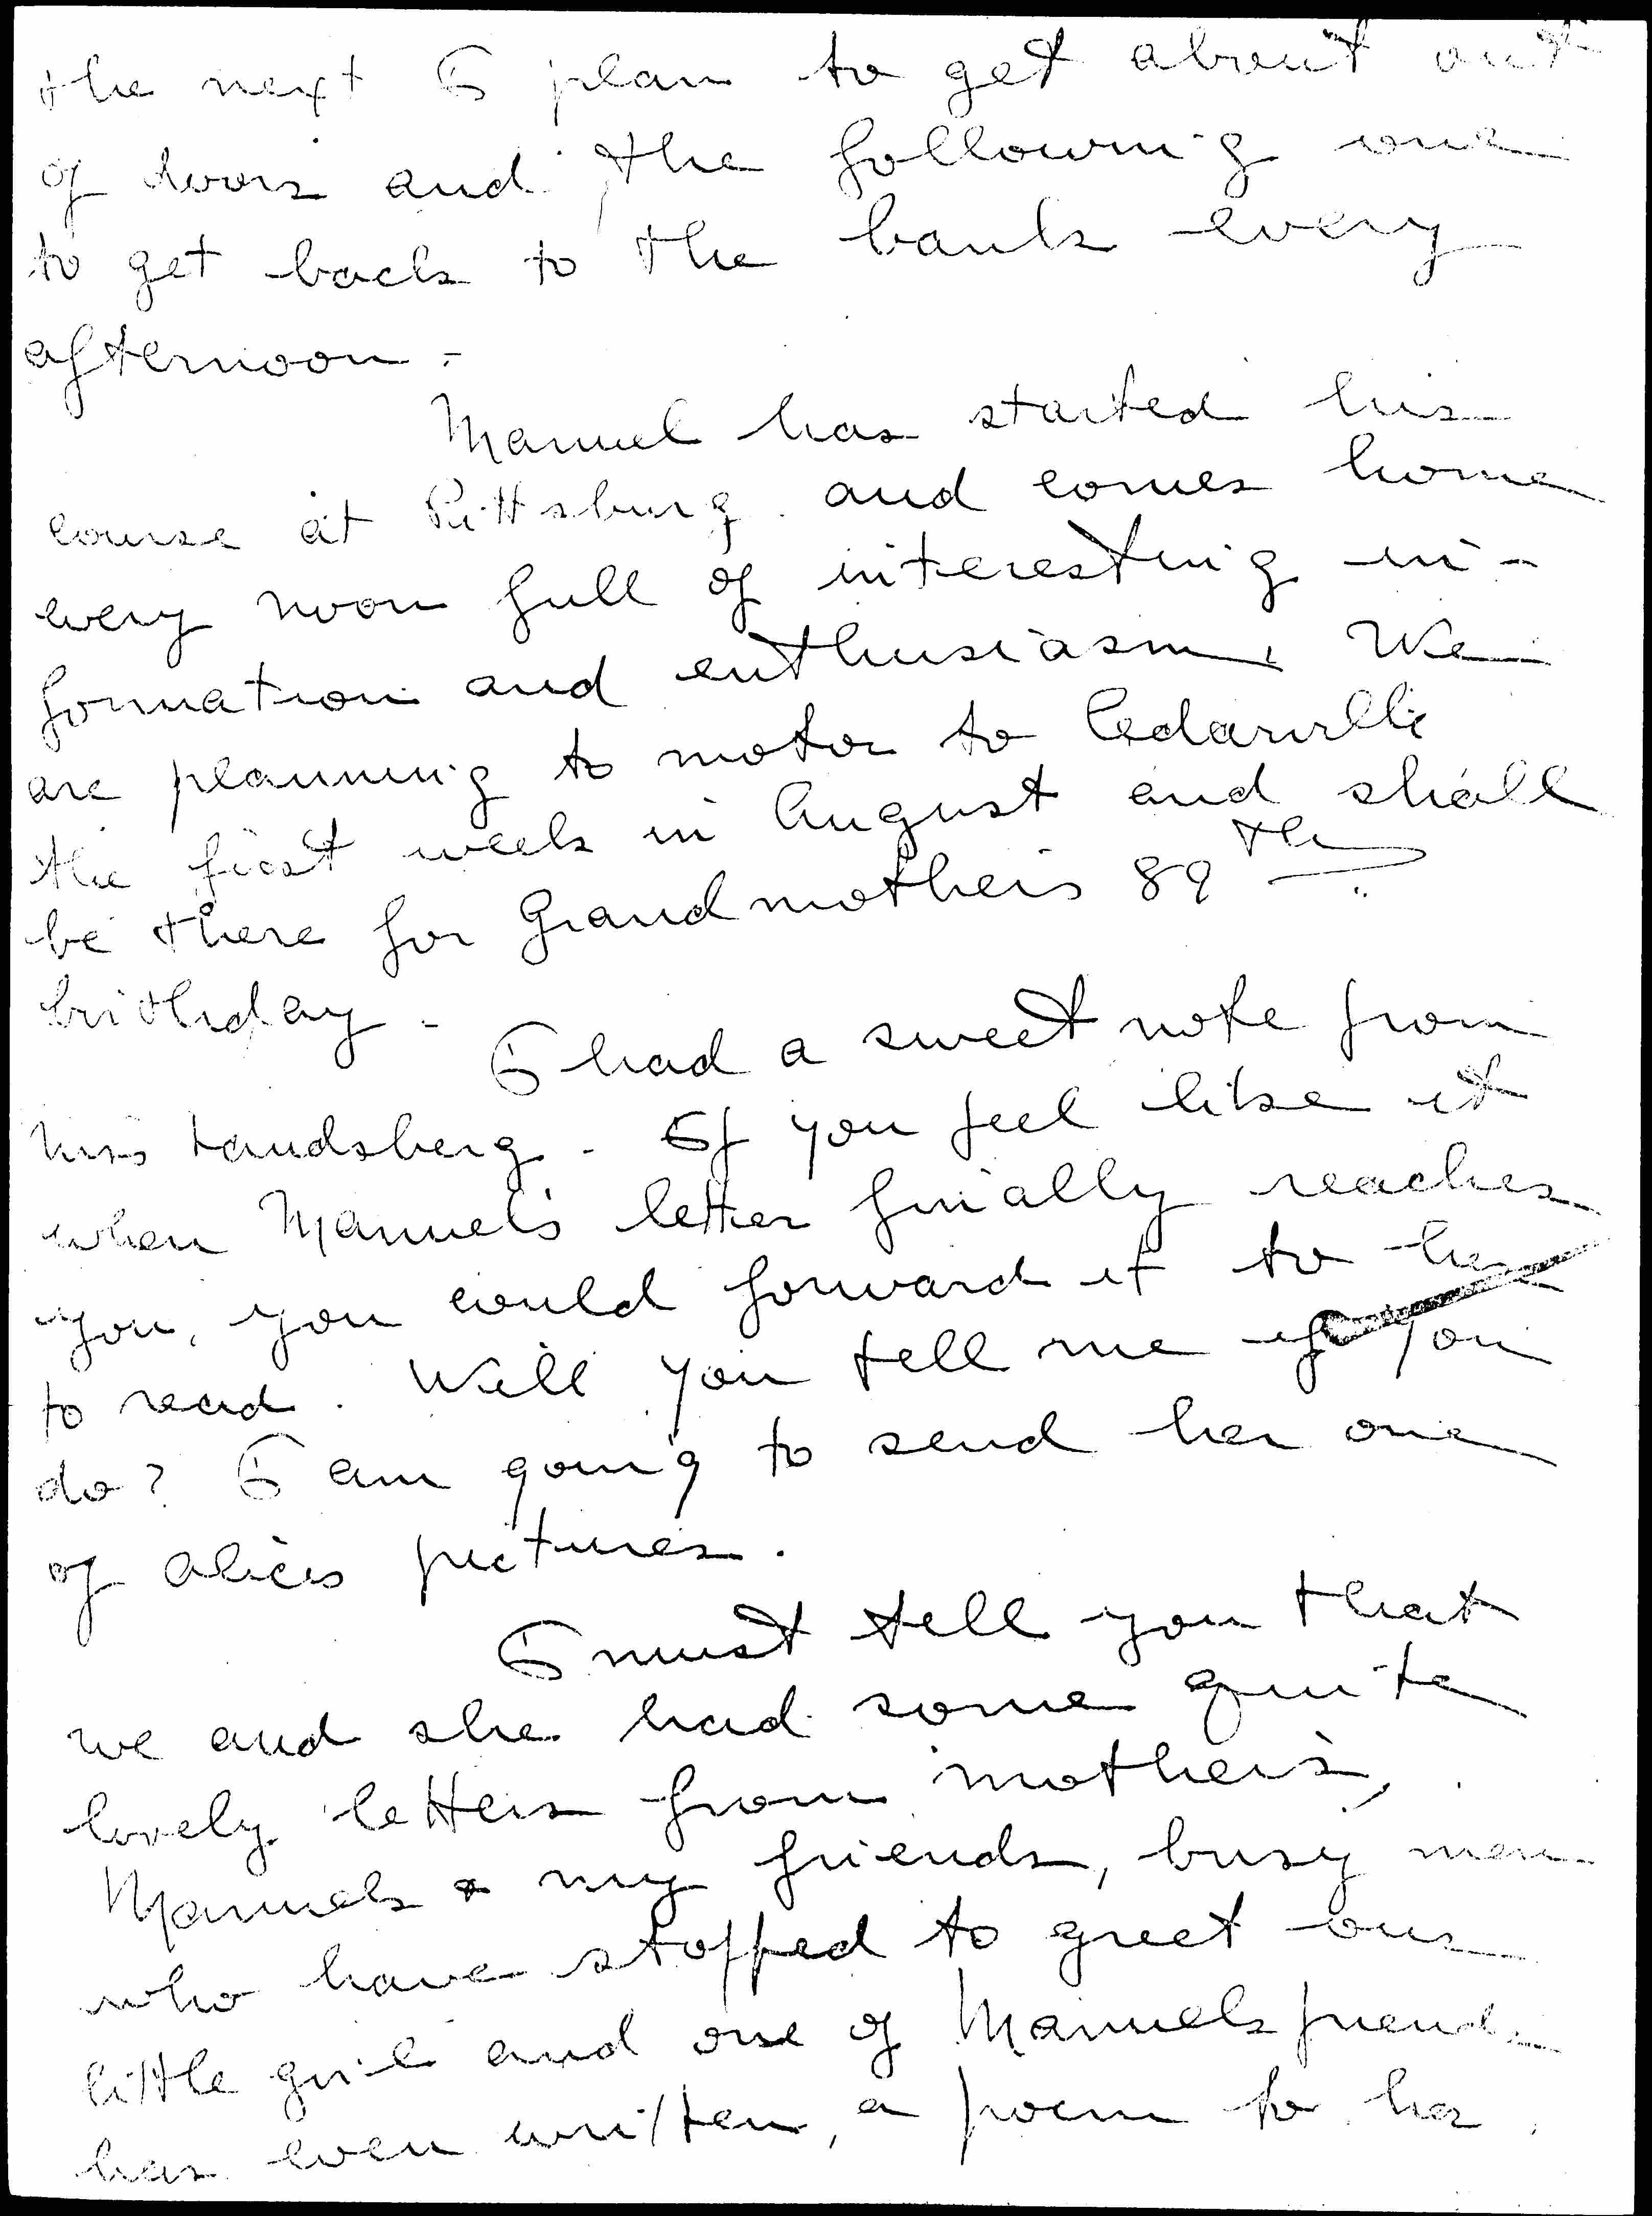 the next I plan to get about out
of doors and the following one
to get back to the bank every
afternoon -
Manuel has started his
course at Pittsburg and comes home
every noon full of interesting in-
formation and enthusiasm. We
are planning to motor to Cedarville
the first week in August and shall
be there for Grandmother's 89th
birthday -
I had a sweet note from
Mrs Landsberg - If you feel like it
when Manuel's letter finally reaches
you, you could forward it to her
to read. Will you tell me if you
do? I am going to send her one
of Alice's pictures.
I must tell you that
we and she had some quite
lovely letters from mother's,
Manuels & my friends, busy men
who have stopped to greet our
little girl and one of Manuels friends
has even written a poem to her.